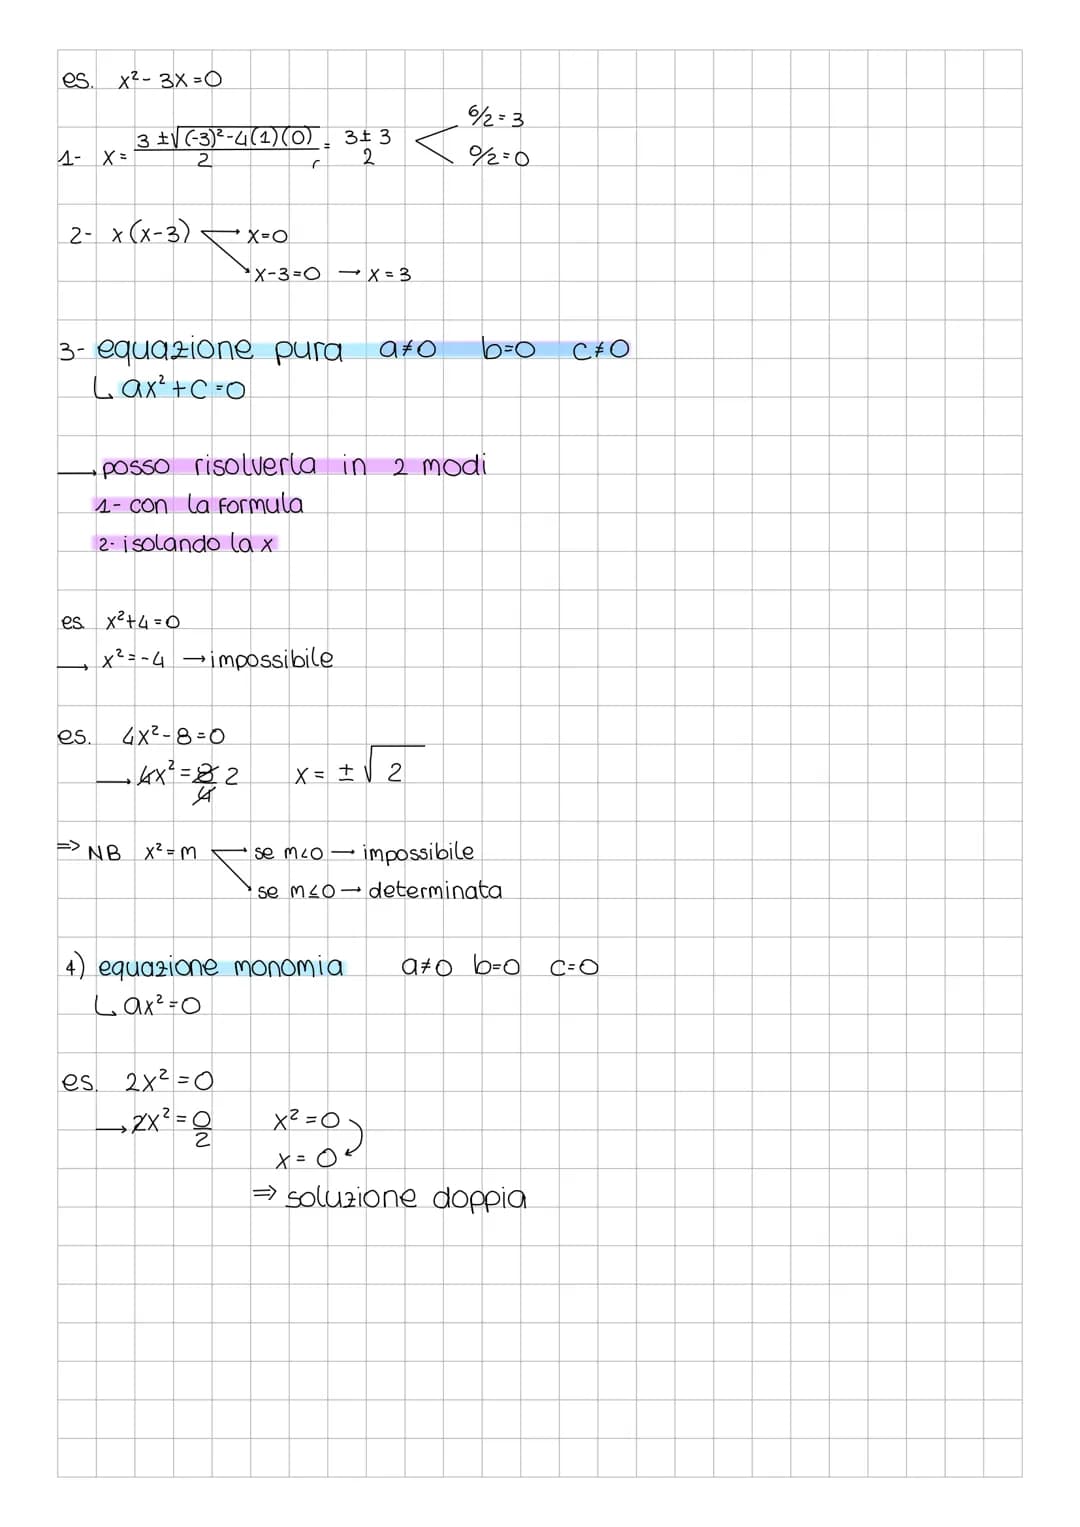 es. x²- 3x=0
1- x= 3 ±√(-3)²-4(1)(0) / 2 = 3± 3 / 2 6/2 = 3
0/2=0
2- x(x-3) x=0
x-3=0 → x=3
3- equazione pura a≠0 b=0 c≠0
↳ ax²+c=0
→ posso risolverla in 2 modi
1- con la formula
2- isolando la x
es x²+4=0
→ x²=-4 → impossibile
es. 4x²-8=0
→ 4x²=8/4 2 x= ±√2
=> NB x²=m se m<0 → impossibile
se m≤0 → determinata
4) equazione monomia a≠0 b=0 c=0
↳ ax²=0
es. 2x²=0
→ 2x²=0/2 x²=0
x=0
=> soluzione doppia